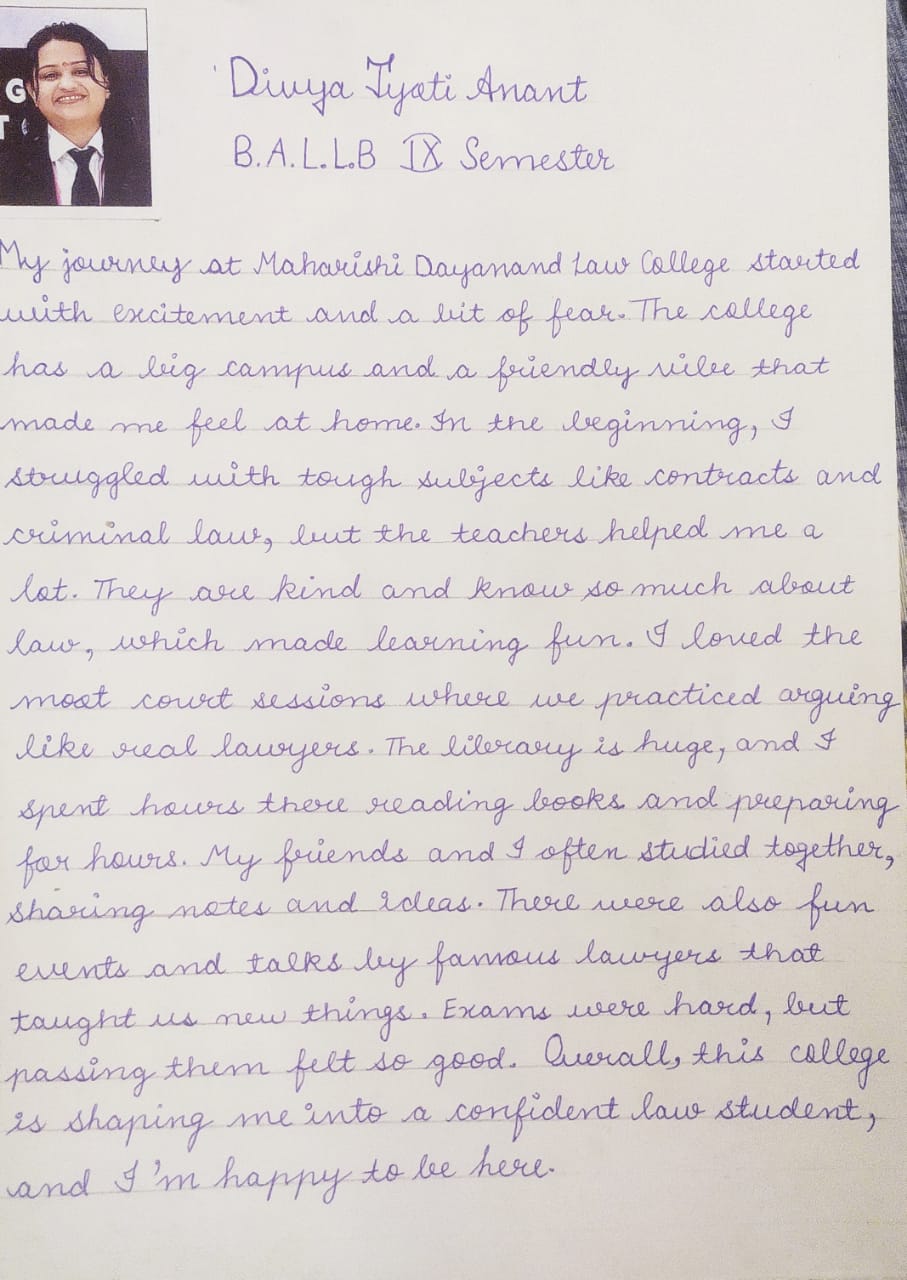 G
T
Divya Jyoti Anant
B.A.L.L.B IX Semester
My journey at Maharishi Dayanand Law College started
with excitement and a bit of fear. The college
has a big campus and a friendly vibe that
made me feel at home. In the beginning, I
struggled with tough subjects like contracts and
criminal law, but the teachers helped me a
lot. They are kind and know so much about
law, which made learning fun. I loved the
moot court sessions where we practiced arguing
like real lawyers. The library is huge, and I
spent hours there reading books and preparing
for hours. My friends and I often studied together,
sharing notes and ideas. There were also fun
events and talks by famous lawyers that
taught us new things. Exams were hard, but
passing them felt so good. Overall, this college
is shaping me into a confident law student,
and I'm happy to be here.